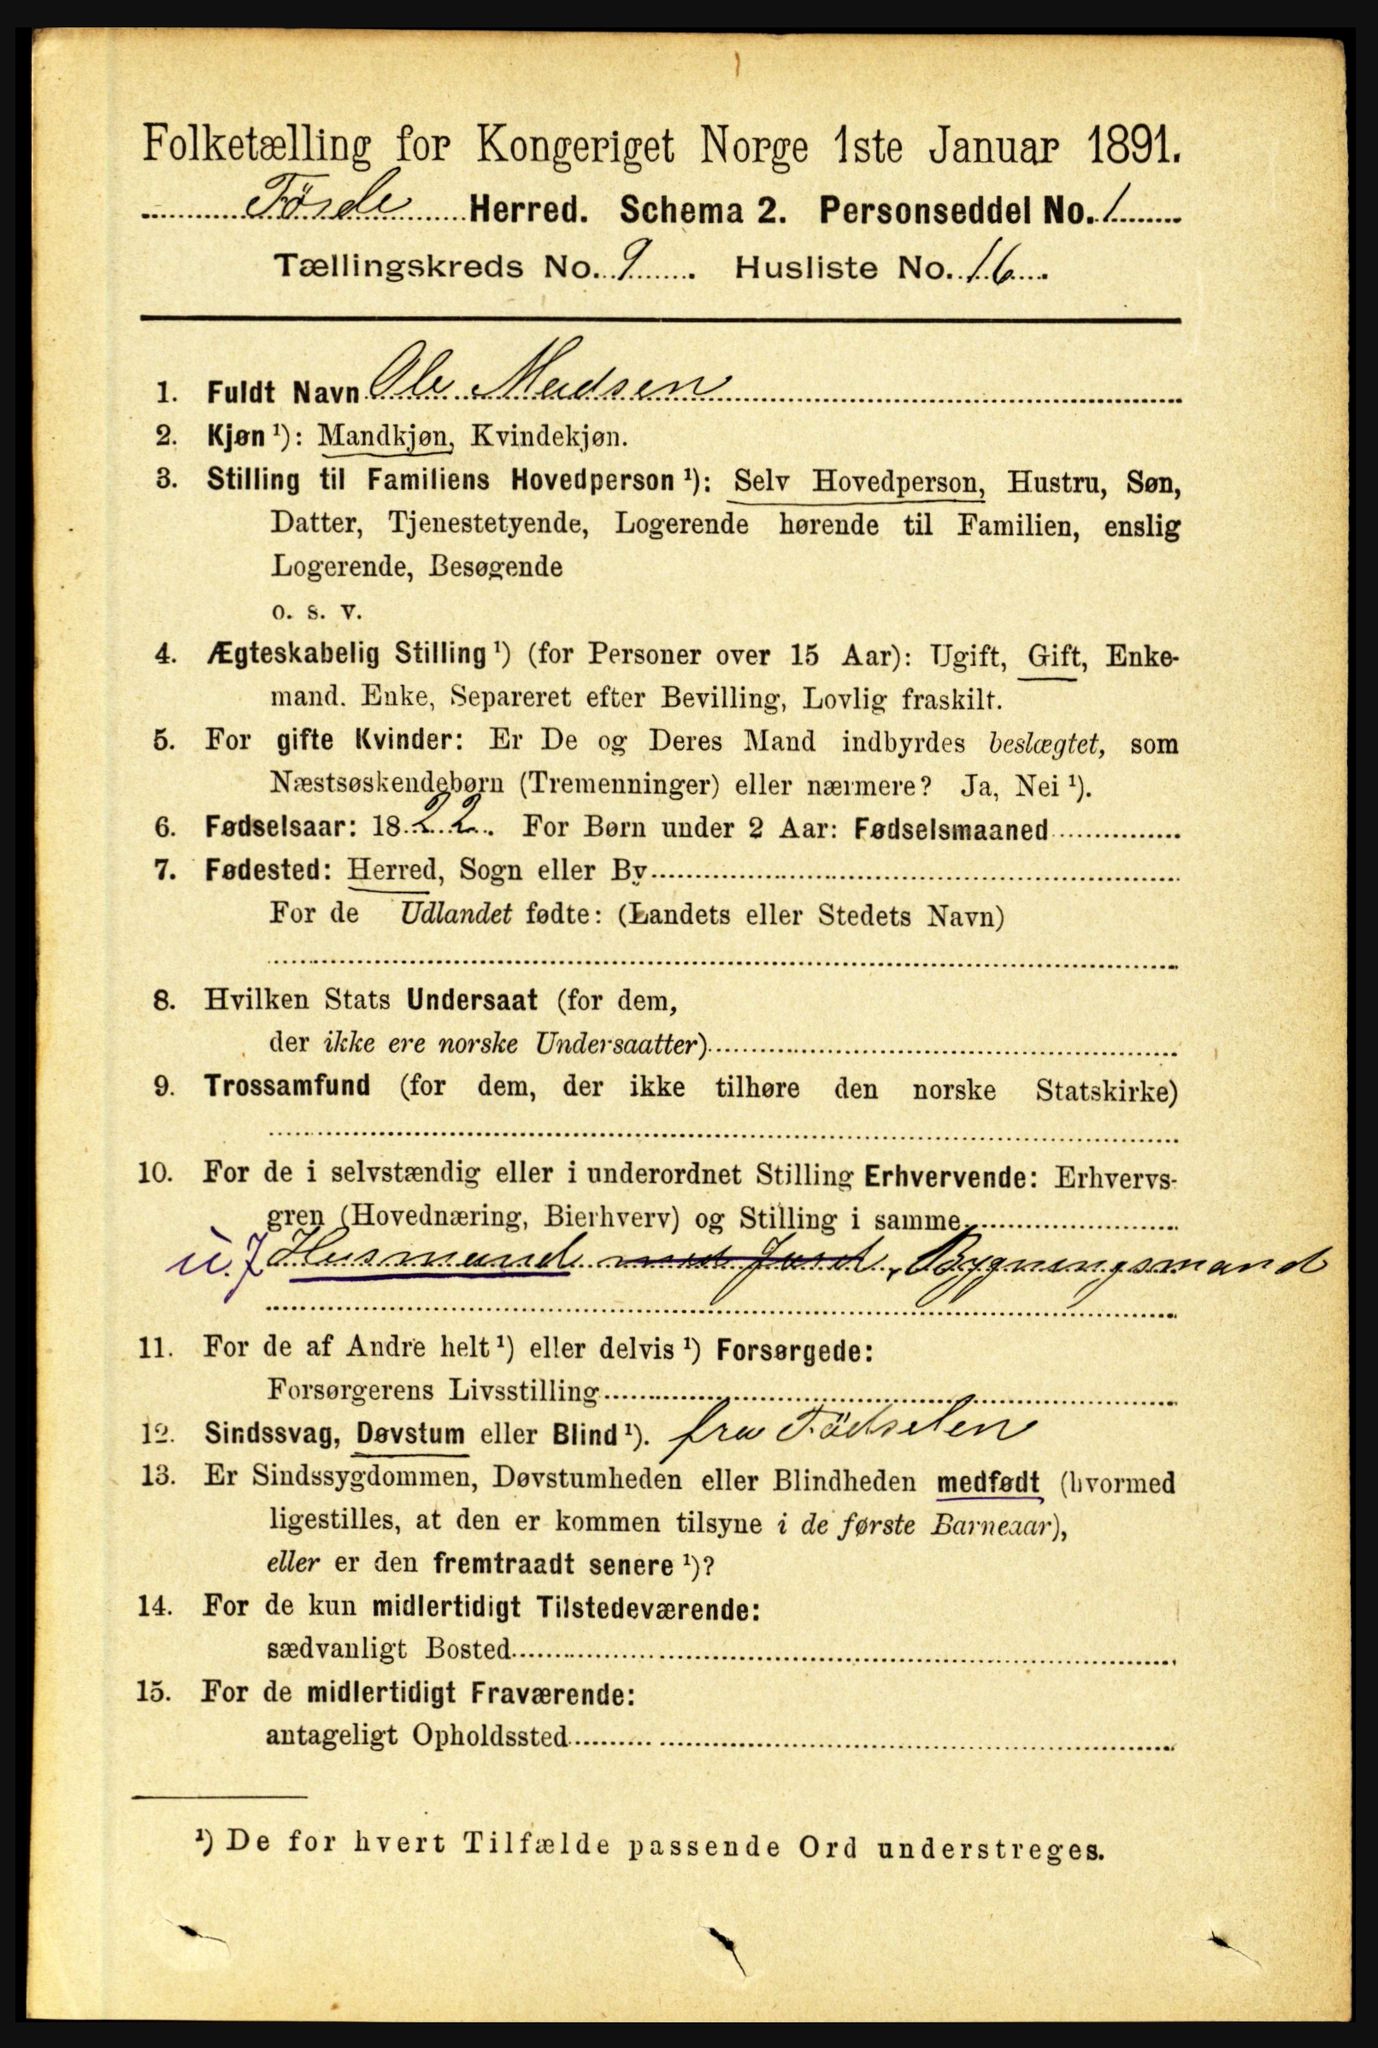 Folketælling for Kongeriget Norge 1ste Januar 1891.
Førde Herred. Schema 2. Personseddel No. 1
Tællingskreds No. 9. Husliste No. 16.
1. Fuldt Navn Ole Madsen
2. Kjøn ¹): Mandkjøn, Kvindekjøn.
3. Stilling til Familiens Hovedperson ¹): Selv Hovedperson, Hustru, Søn,
Datter, Tjenestetyende, Logerende hørende til Familien, enslig
Logerende, Besøgende
o. s. v.
4. Ægteskabelig Stilling ¹) (for Personer over 15 Aar): Ugift, Gift, Enke-
mand. Enke, Separeret efter Bevilling, Lovlig fraskilt.
5. For gifte Kvinder: Er De og Deres Mand indbyrdes beslægtet, som
Næstsøskendebørn (Tremenninger) eller nærmere? Ja, Nei ¹).
6. Fødselsaar: 1822. For Børn under 2 Aar: Fødselsmaaned
7. Fødested: Herred, Sogn eller By
For de Udlandet fødte: (Landets eller Stedets Navn)
8. Hvilken Stats Undersaat (for dem,
der ikke ere norske Undersaatter)
9. Trossamfund (for dem, der ikke tilhøre den norske Statskirke)
10. For de i selvstændig eller i underordnet Stilling Erhvervende: Erhvervs-
gren (Hovednæring, Bierhverv) og Stilling i samme
u. J Husmand med Jord, Bygningsmand
11. For de af Andre helt ¹) eller delvis ¹) Forsørgede:
Forsørgerens Livsstilling
12. Sindssvag, Døvstum eller Blind ¹). fra Fødselen
13. Er Sindssygdommen, Døvstumheden eller Blindheden medfødt (hvormed
ligestilles, at den er kommen tilsyne i de første Barneaar),
eller er den fremtraadt senere ¹)?
14. For de kun midlertidigt Tilstedeværende:
sædvanligt Bosted
15. For de midlertidigt Fraværende:
antageligt Opholdssted
¹) De for hvert Tilfælde passende Ord understreges.